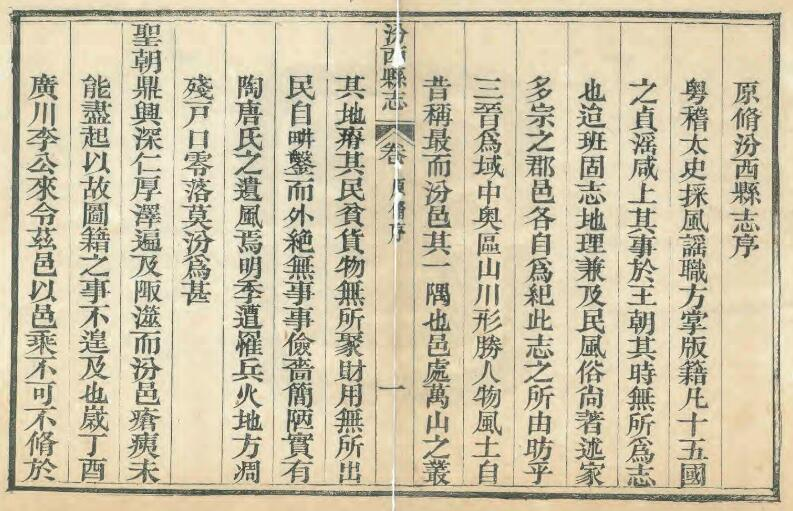 原脩汾西縣志序
粤稽太史採風謡職方掌版籍凡十五國
之貞滛咸上其事於王朝其時無所爲志
也迨班固志地理兼及民風俗尙著述家
多宗之郡邑各自爲紀此志之所由昉乎
三晉爲域中奥區山川形勝人物風土自
昔稱最而汾邑其一隅也邑處萬山之叢
汾西縣志
卷
原脩序
一
其地瘠其民貧貨物無所聚財用無所出
民自畊鑿而外絶無事事儉嗇簡陋實有
陶唐氏之遺風焉明季遭罹兵火地方凋
殘戸口零落莫汾爲甚
聖朝鼎興深仁厚澤遍及陬澨而汾邑瘡痍未
能盡起以故圖籍之事不遑及也歲丁酉
廣川李公來令茲邑以邑乘不可不脩於